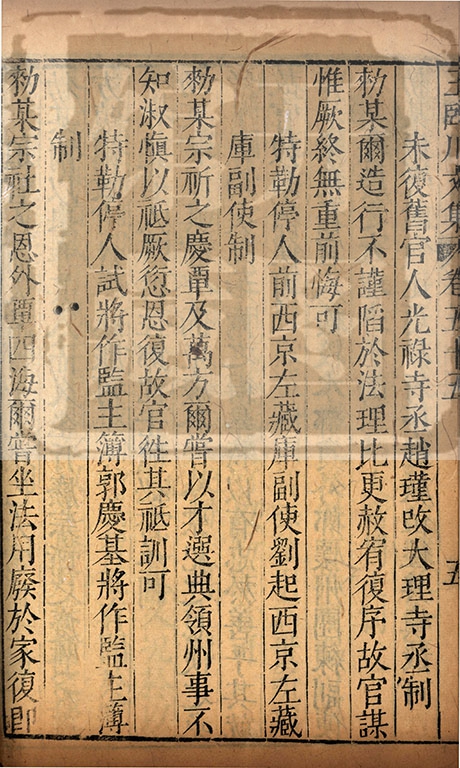 王臨川文集 卷五十五 五
未復舊官人光祿寺丞趙瑾改大理寺丞制
勑某爾造行不謹陷於法理比更赦宥復序故官謀
惟厥終無重前悔可
特勒停人前西京左藏庫副使劉起西京左藏
庫副使制
勑某宗祈之慶覃及萬方爾嘗以才選典領州事不
知淑愼以祗厥愆恩復故官徃其祗訓可
特勒停人試將作監主簿郭慶基將作監主薄
制
勑某宗社之恩外覃四海爾嘗坐法用廢於家復卽